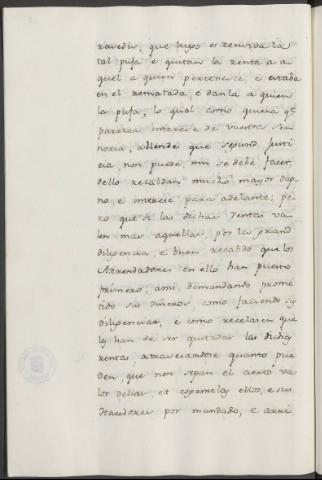 ravedis, que luego es recivida la
tal puja e quitan la renta a a
quel a quien pertenesce, e estaba
en el rematada e danla a quien
la puja, lo qual como quiera q.e
paresca interese de vuestra Señ
noria, allende que segund justi
cia non puede nin se debe facer,
dello recaldan mucho mayor dap
no, e interese para adelante; pe
ro que si las dichas rentas va
len mas aquellas, por la grand
diligencia, e buen recabdo que los
Arrendadores en ello han puesto
primero, ansi demandando prome
tido sus dineros, como faciendo sus
diligencias, e como recelasen que
les han de ser quitadas las dichas
rentas, atraviesandose quanto pue
den, que non sepan el cierto va
lor dellas, et esperuelos ellos, e sus
Hacedores por mandado, e arri